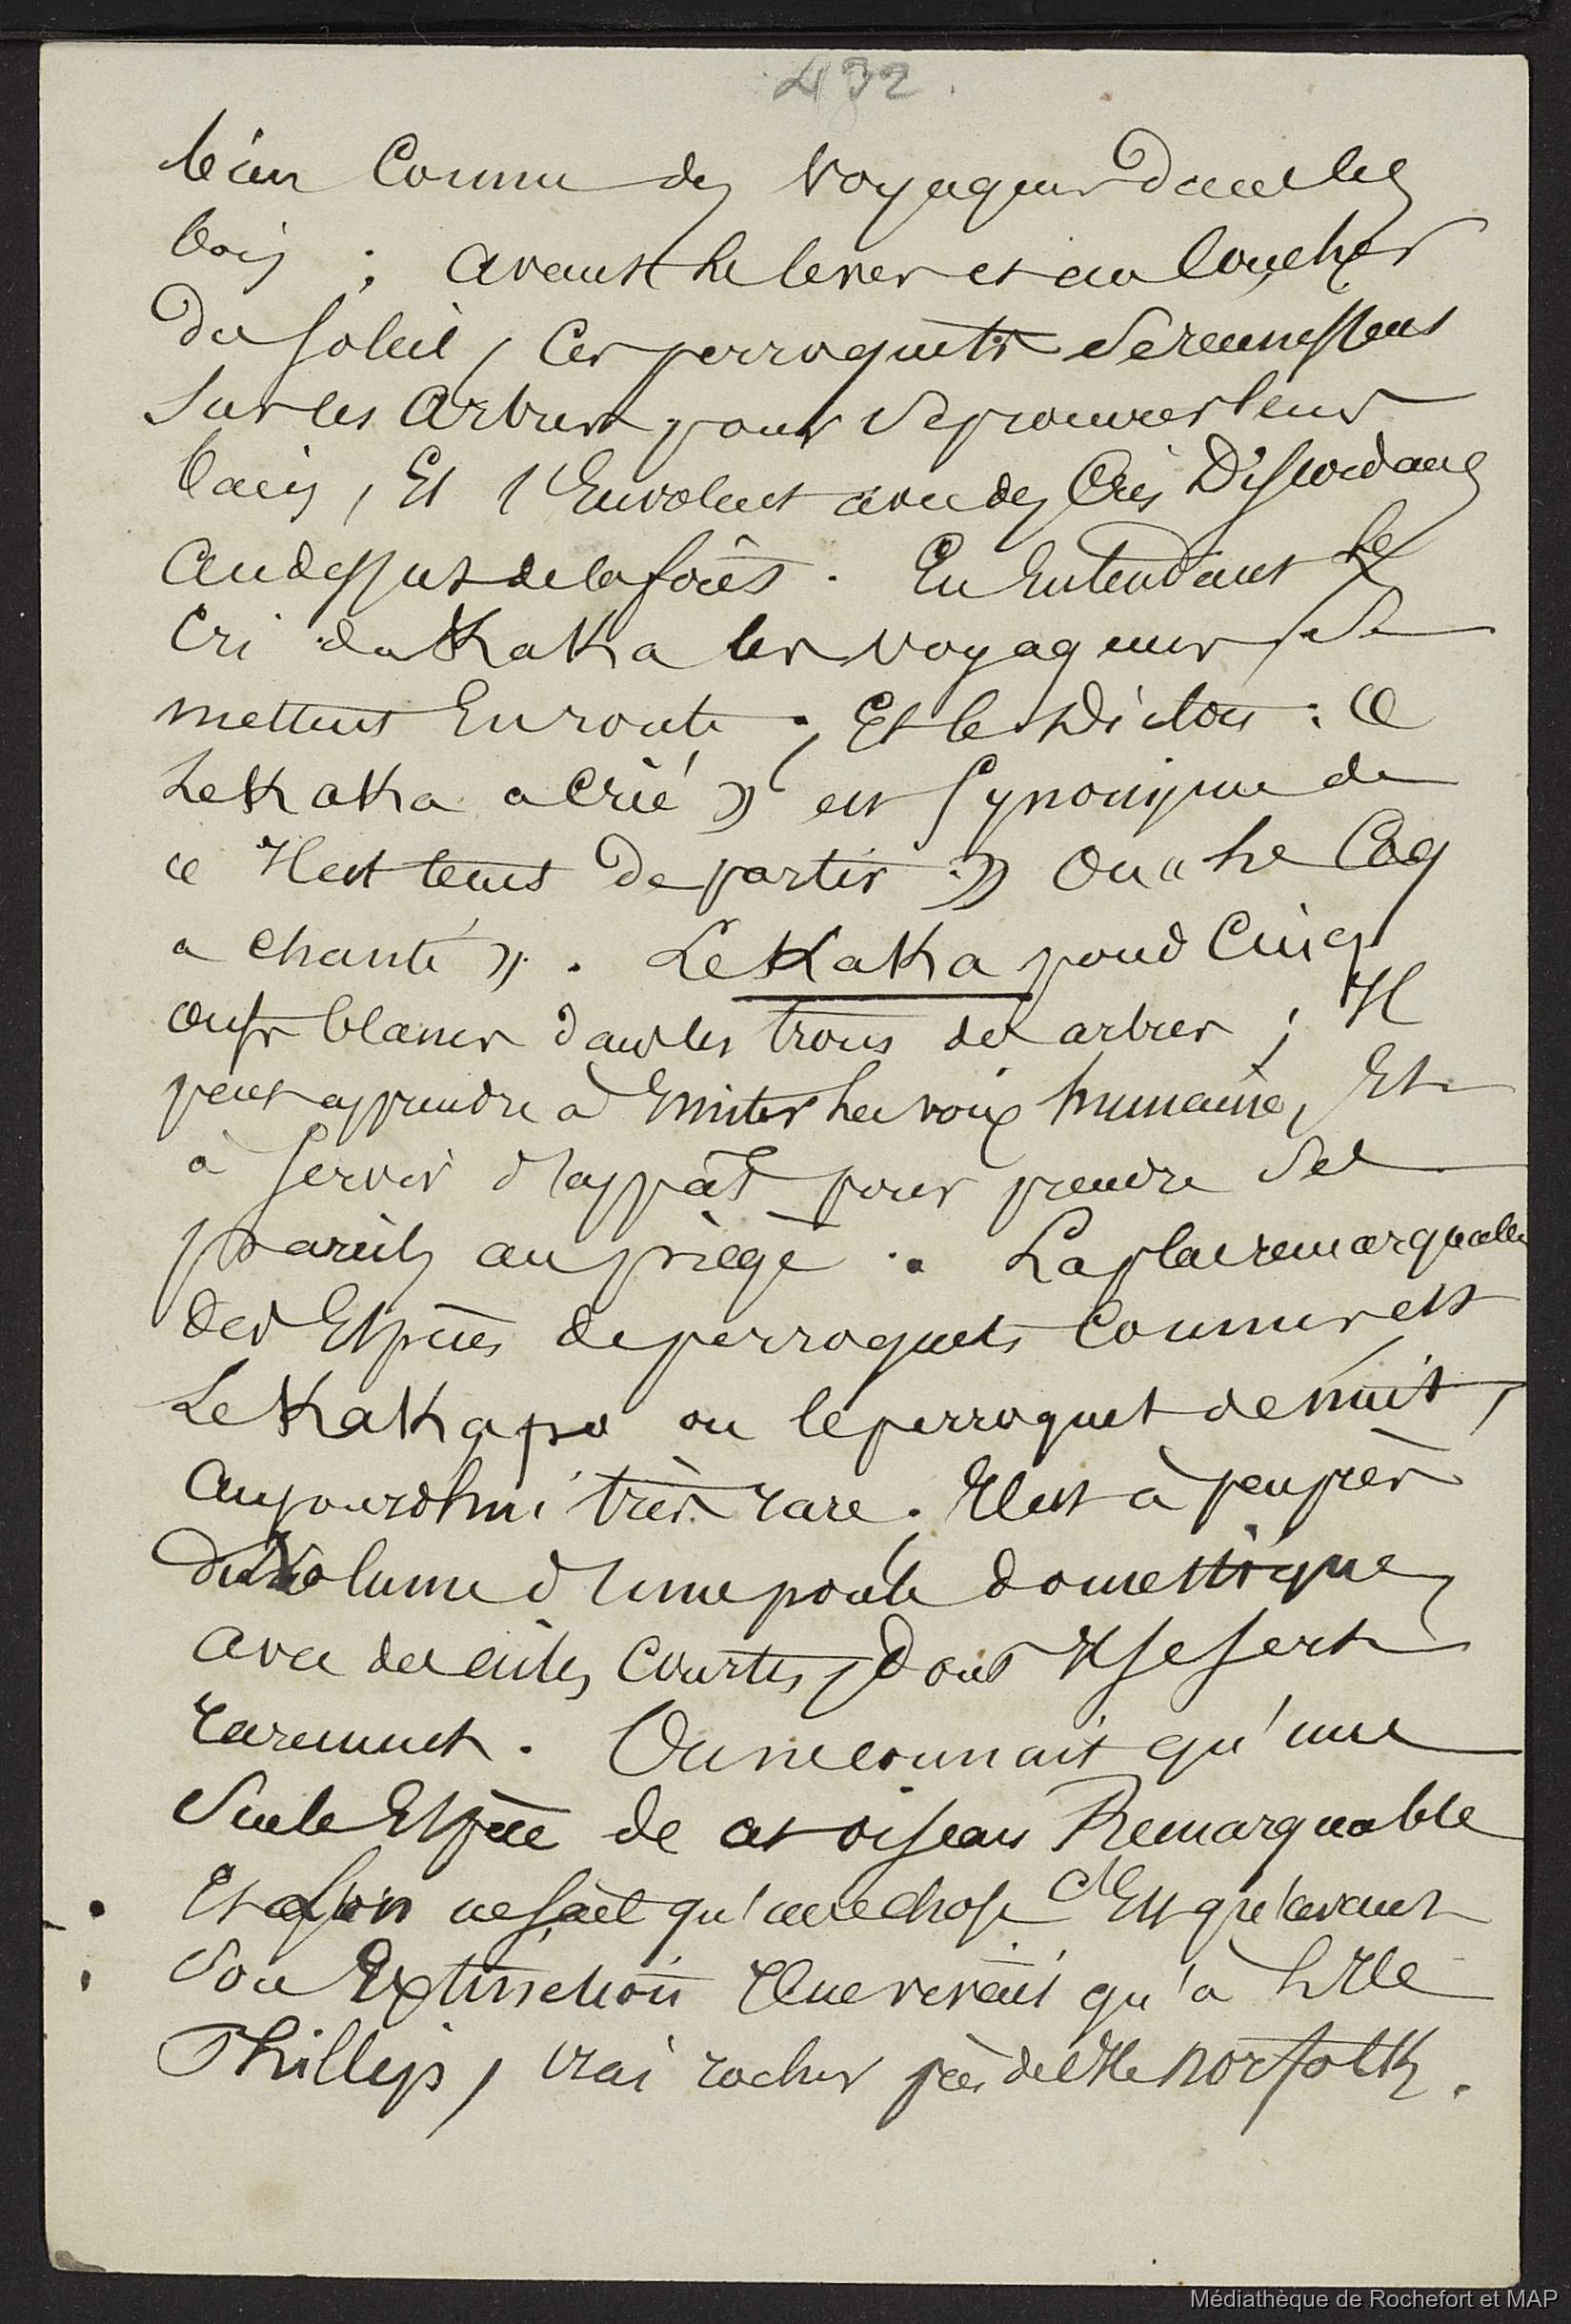 432.
bien connu des voyageurs dans les
bois ; avant le lever et au coucher
du soleil, ces perroquets se reunissent
sur les arbres pour se procurer leur
bacis, Et s'Envolent avec des Cris Discordans
au dessus de la forêt. En Entendant le
Cri du KaKa les voyageurs se
mettent En route ; Et le Dicton : «
Le KaKa a Crié » est Synonyme de
« Il est tems De partir » ou « Le Coq
a chanté ». Le KaKa pond Cinq
oeufs blancs dans les trous des arbres ; Il
peut apprendre à Imiter La voix humaine, Et
à servir d'appât pour prendre ses
pareils au piège. La plus remarquable
des Espèces de perroquets connus est
Le KaKapo ou le perroquet de nuit,
aujourdhui très rare. Il est à peu près
du volume d'une poule domestique,
avec des ailes courtes, dont Il se sert
rarement. On ne connait qu'une
Seule Espèce de cet oiseau Remarquable
Et l'on ne sait qu'une chose c'Est qu'avant
son Extinction Il ne vivait qu'à L'Ile
Phillip, vrai rocher près de l'Ile norfolk.
Médiathèque de Rochefort et MAP